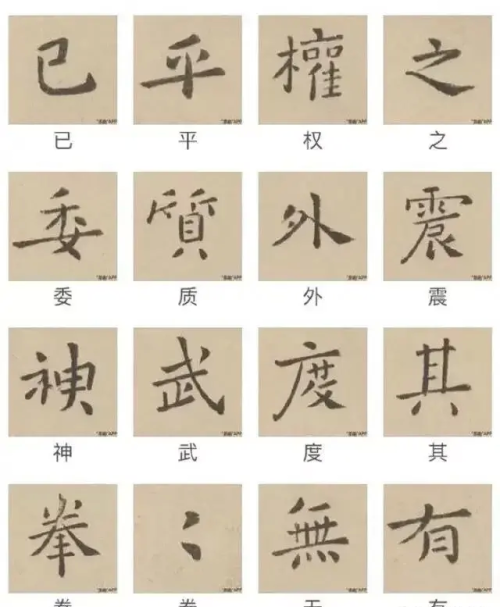 已 平 權 之
已 平 权 之
委 質 外 震
委 质 外 震
神 武 度 其
神 武 度 其
拳 〻 無 有
拳 拳 无 有